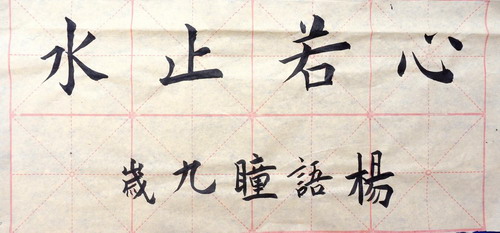 心若止水
楊語瞳九歲